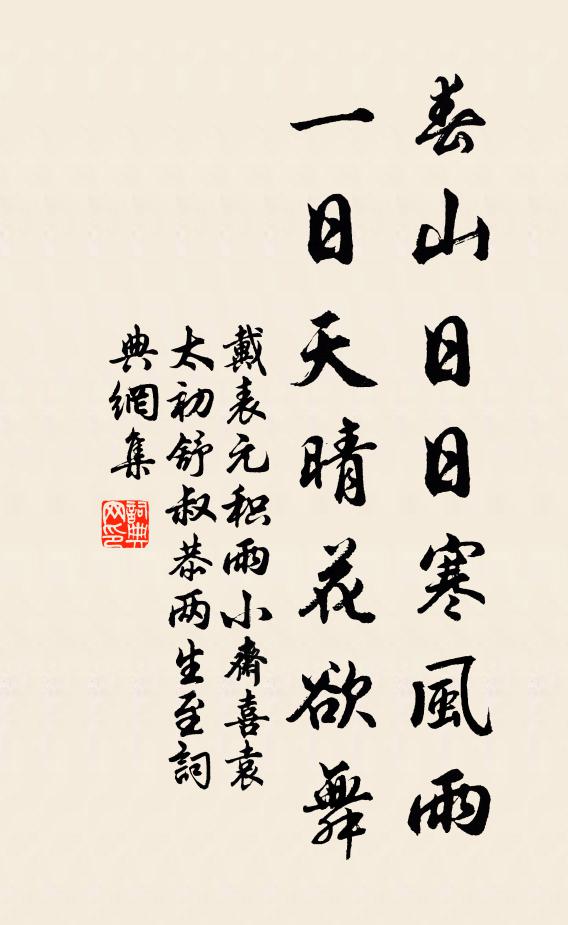 春山日日寒風雨
一日天晴花欲舞
戴表元积雨小齋喜袁
太初舒叔恭两生至詞
典網集
詞典網印